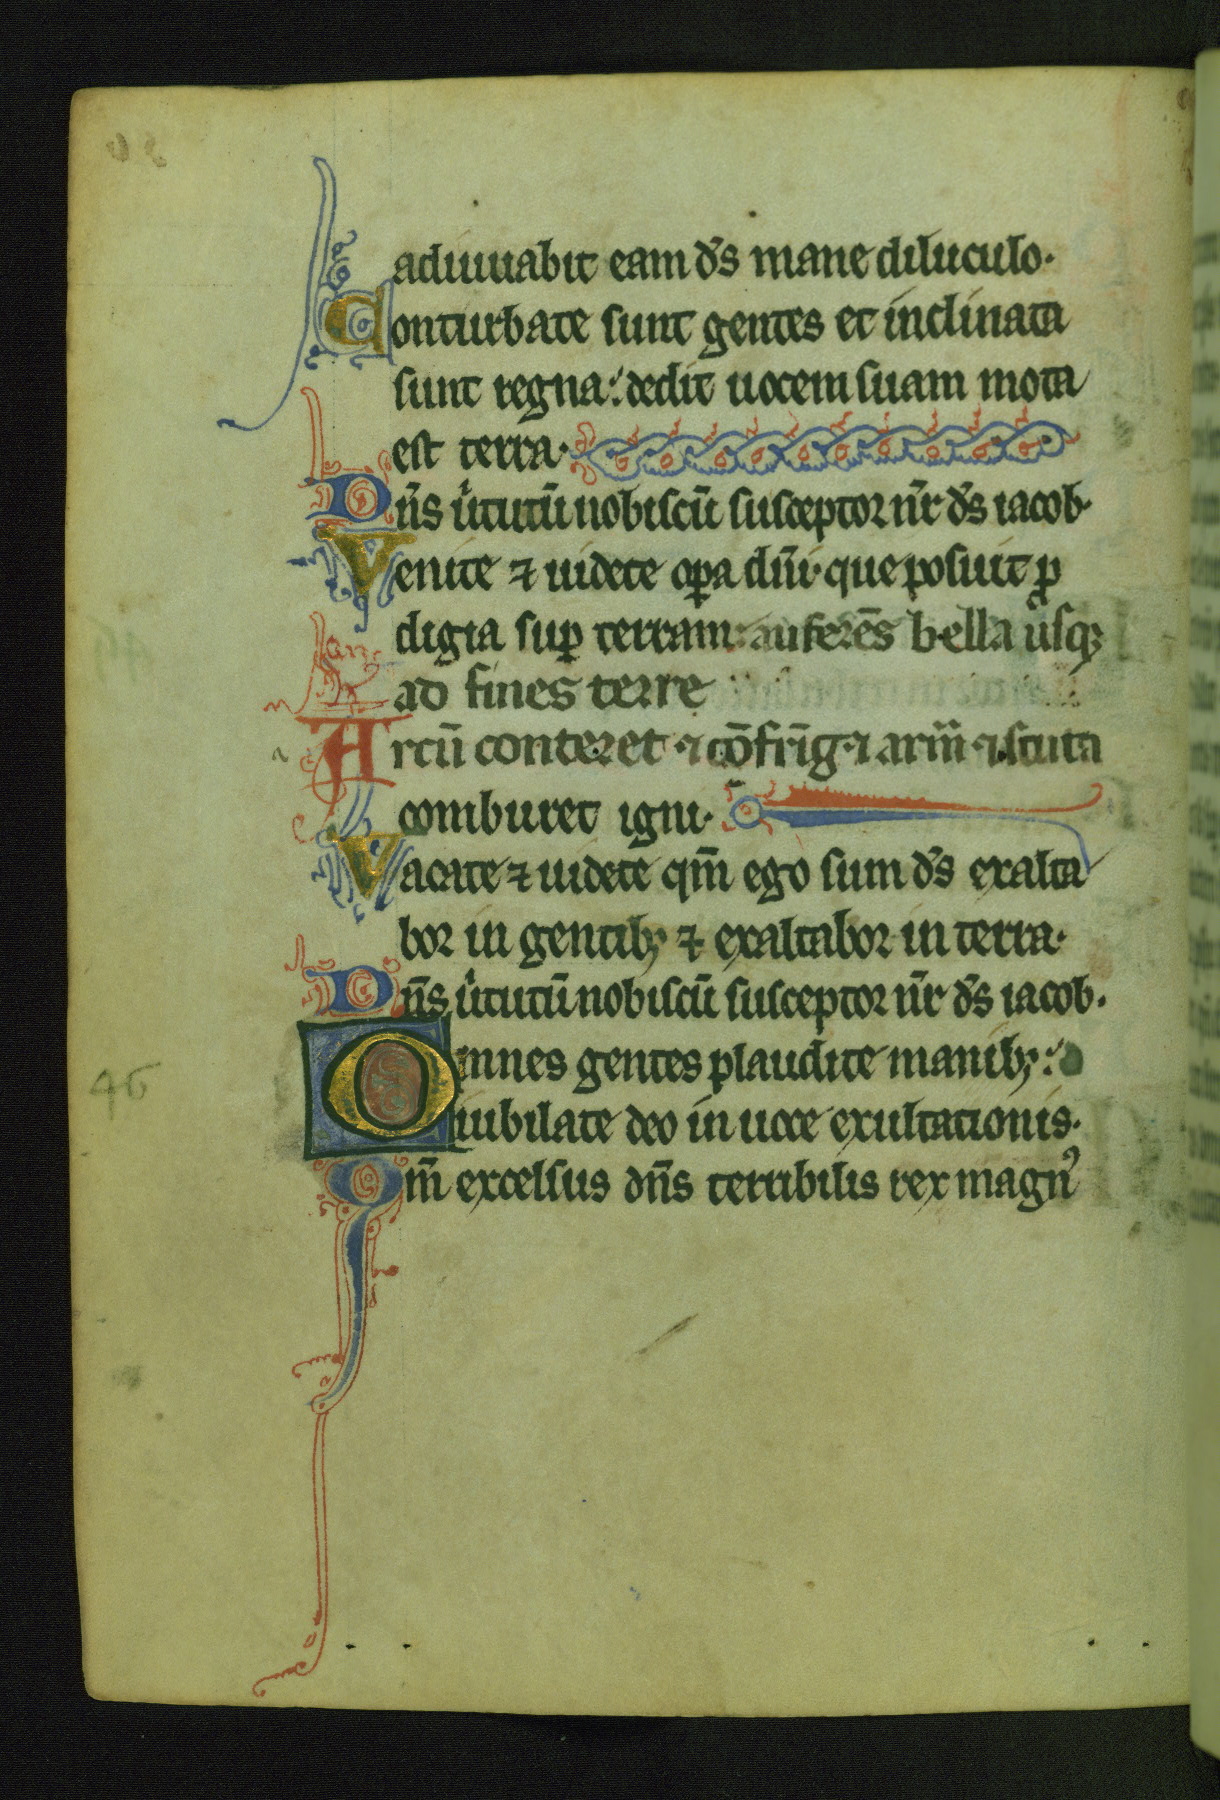 adiuuabit eam d̄s mane diluculo·
Conturbate sunt gentes et inclinata
sunt regna: dedit uocem suam mota
est terra·
Dn̄s u̇tutū nobiscū susceptor nr̄ d̄s iacob·
Venite ⁊ uidete oꝑa dn̄i· que posuit ꝓ
digia suꝑ terram: auferēs bella usqꝫ
ad fines terre
Arcū conteret ⁊ cōfrīg ⁊ arm̄ ⁊ scuta
comburet igni·
Vacate ⁊ uidete qm̄ ego sum d̄s exalta
bor in gentibꝫ ⁊ exaltabor in terra·
Dn̄s u̇tutū nobiscū susceptor nr̄ d̄s iacob·
Omnes gentes plaudite manibꝫ:
iubilate deo in uoce exultationis·
Qm̄ excelsus dn̄s terribilis rex magnꝰ
46